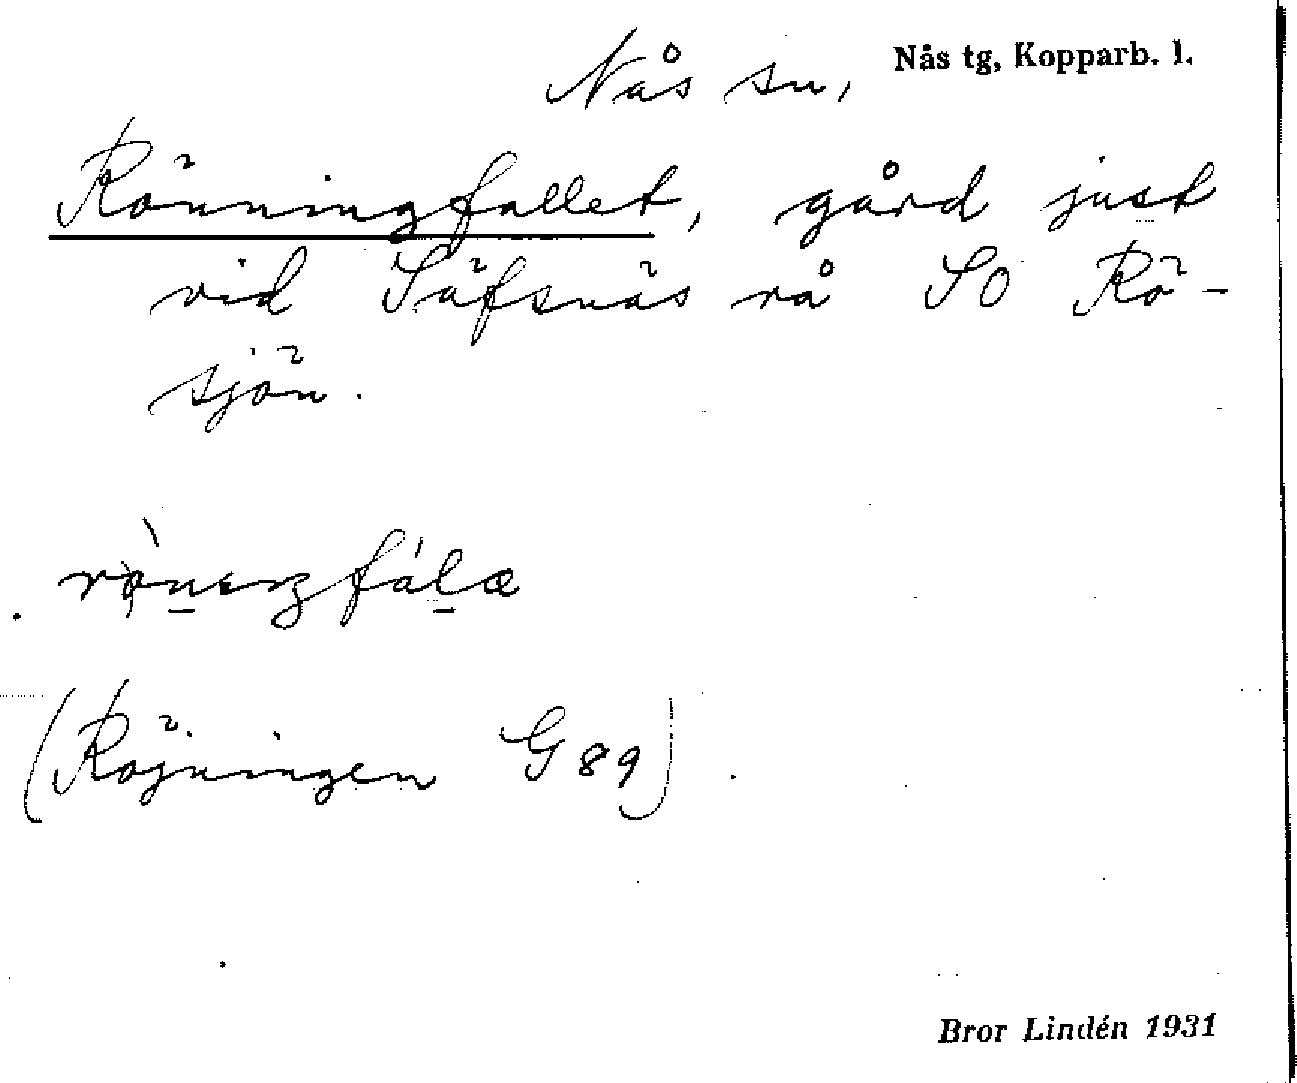 Nås sn, Nås tg, Kopparb. l.
Rönningfallet, gård just
vid Säfsnäs rå SO Rö-
sjön.
(Röjningen G 89)
Bror Lindén 1931